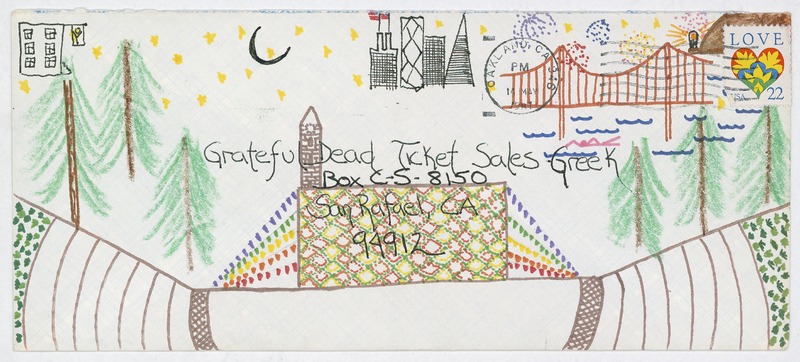 LOVE
USA 22
OAKLAND, CA
PM
14 MAY
Grateful Dead Ticket Sales-Greek
Box C-S-8150
San Rafael, CA
94912